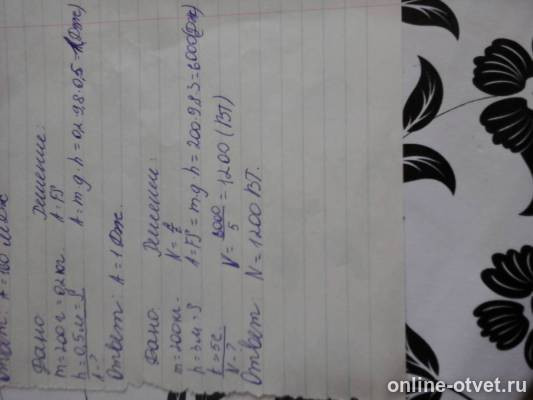 Ответ: A = 100 МДж
Дано: Решение:
m = 200 г = 0,2 кг. A = FS
h = 0,5 м = S A = m·g·h = 0,2·9,8·0,5 = 1(Дж)
A - ?
Ответ: A = 1 Дж.
Дано: Решение:
m = 200 кг. N =
h = 3 м = S A = FS = m·g·h = 200·9,8·3 = 6000(Дж)
t = 5 с N = 6000/5 = 1200 (Вт)
N - ?
Ответ N = 1200 Вт.
online-otvet.ru